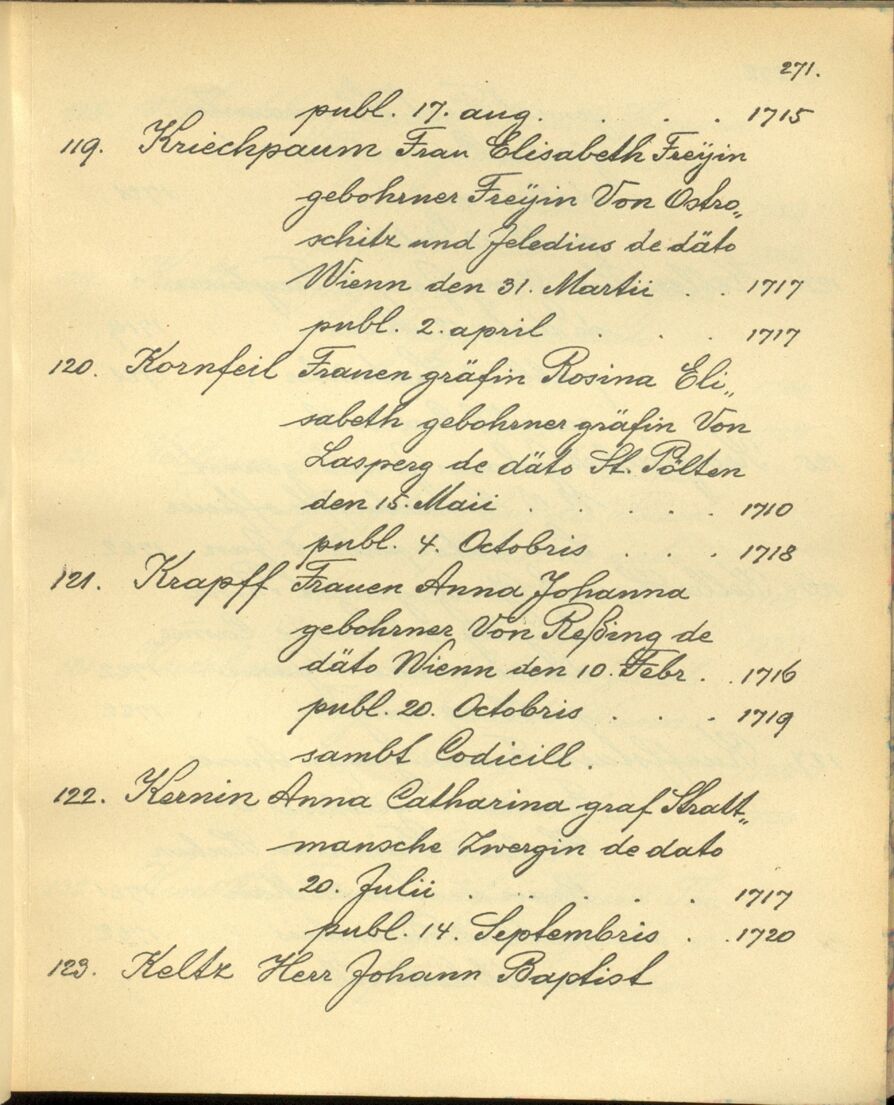 271.
publ. 17. aug. . . . . 1715
119. Kriechpaum Frau Elisabeth Freÿin
gebohrner Freÿin Von Ostro„
schitz und Jeledius de däto
Wienn den 31. Martii . . 1717
publ. 2. april . . . 1717
120. Kornfeil Frauen gräfin Rosina Eli„
sabeth gebohrner gräfin Von
Lasperg de däto St. Pölten
den 15. Maii . . . . . 1710
publ. 4. Octobris . . . 1718
121. Krapff Frauen Anna Johanna
gebohrner Von Reßing de
däto Wienn den 10. Febr . . 1716
publ. 20. Octobris . . . 1719
sambt Codicill.
122. Kernin Anna Catharina graf Stratt„
mansche Zwergin de dato
20. Julii . . . . . . 1717
publ. 14. Septembris . . 1720
123. Keltz Herr Johann Baptist